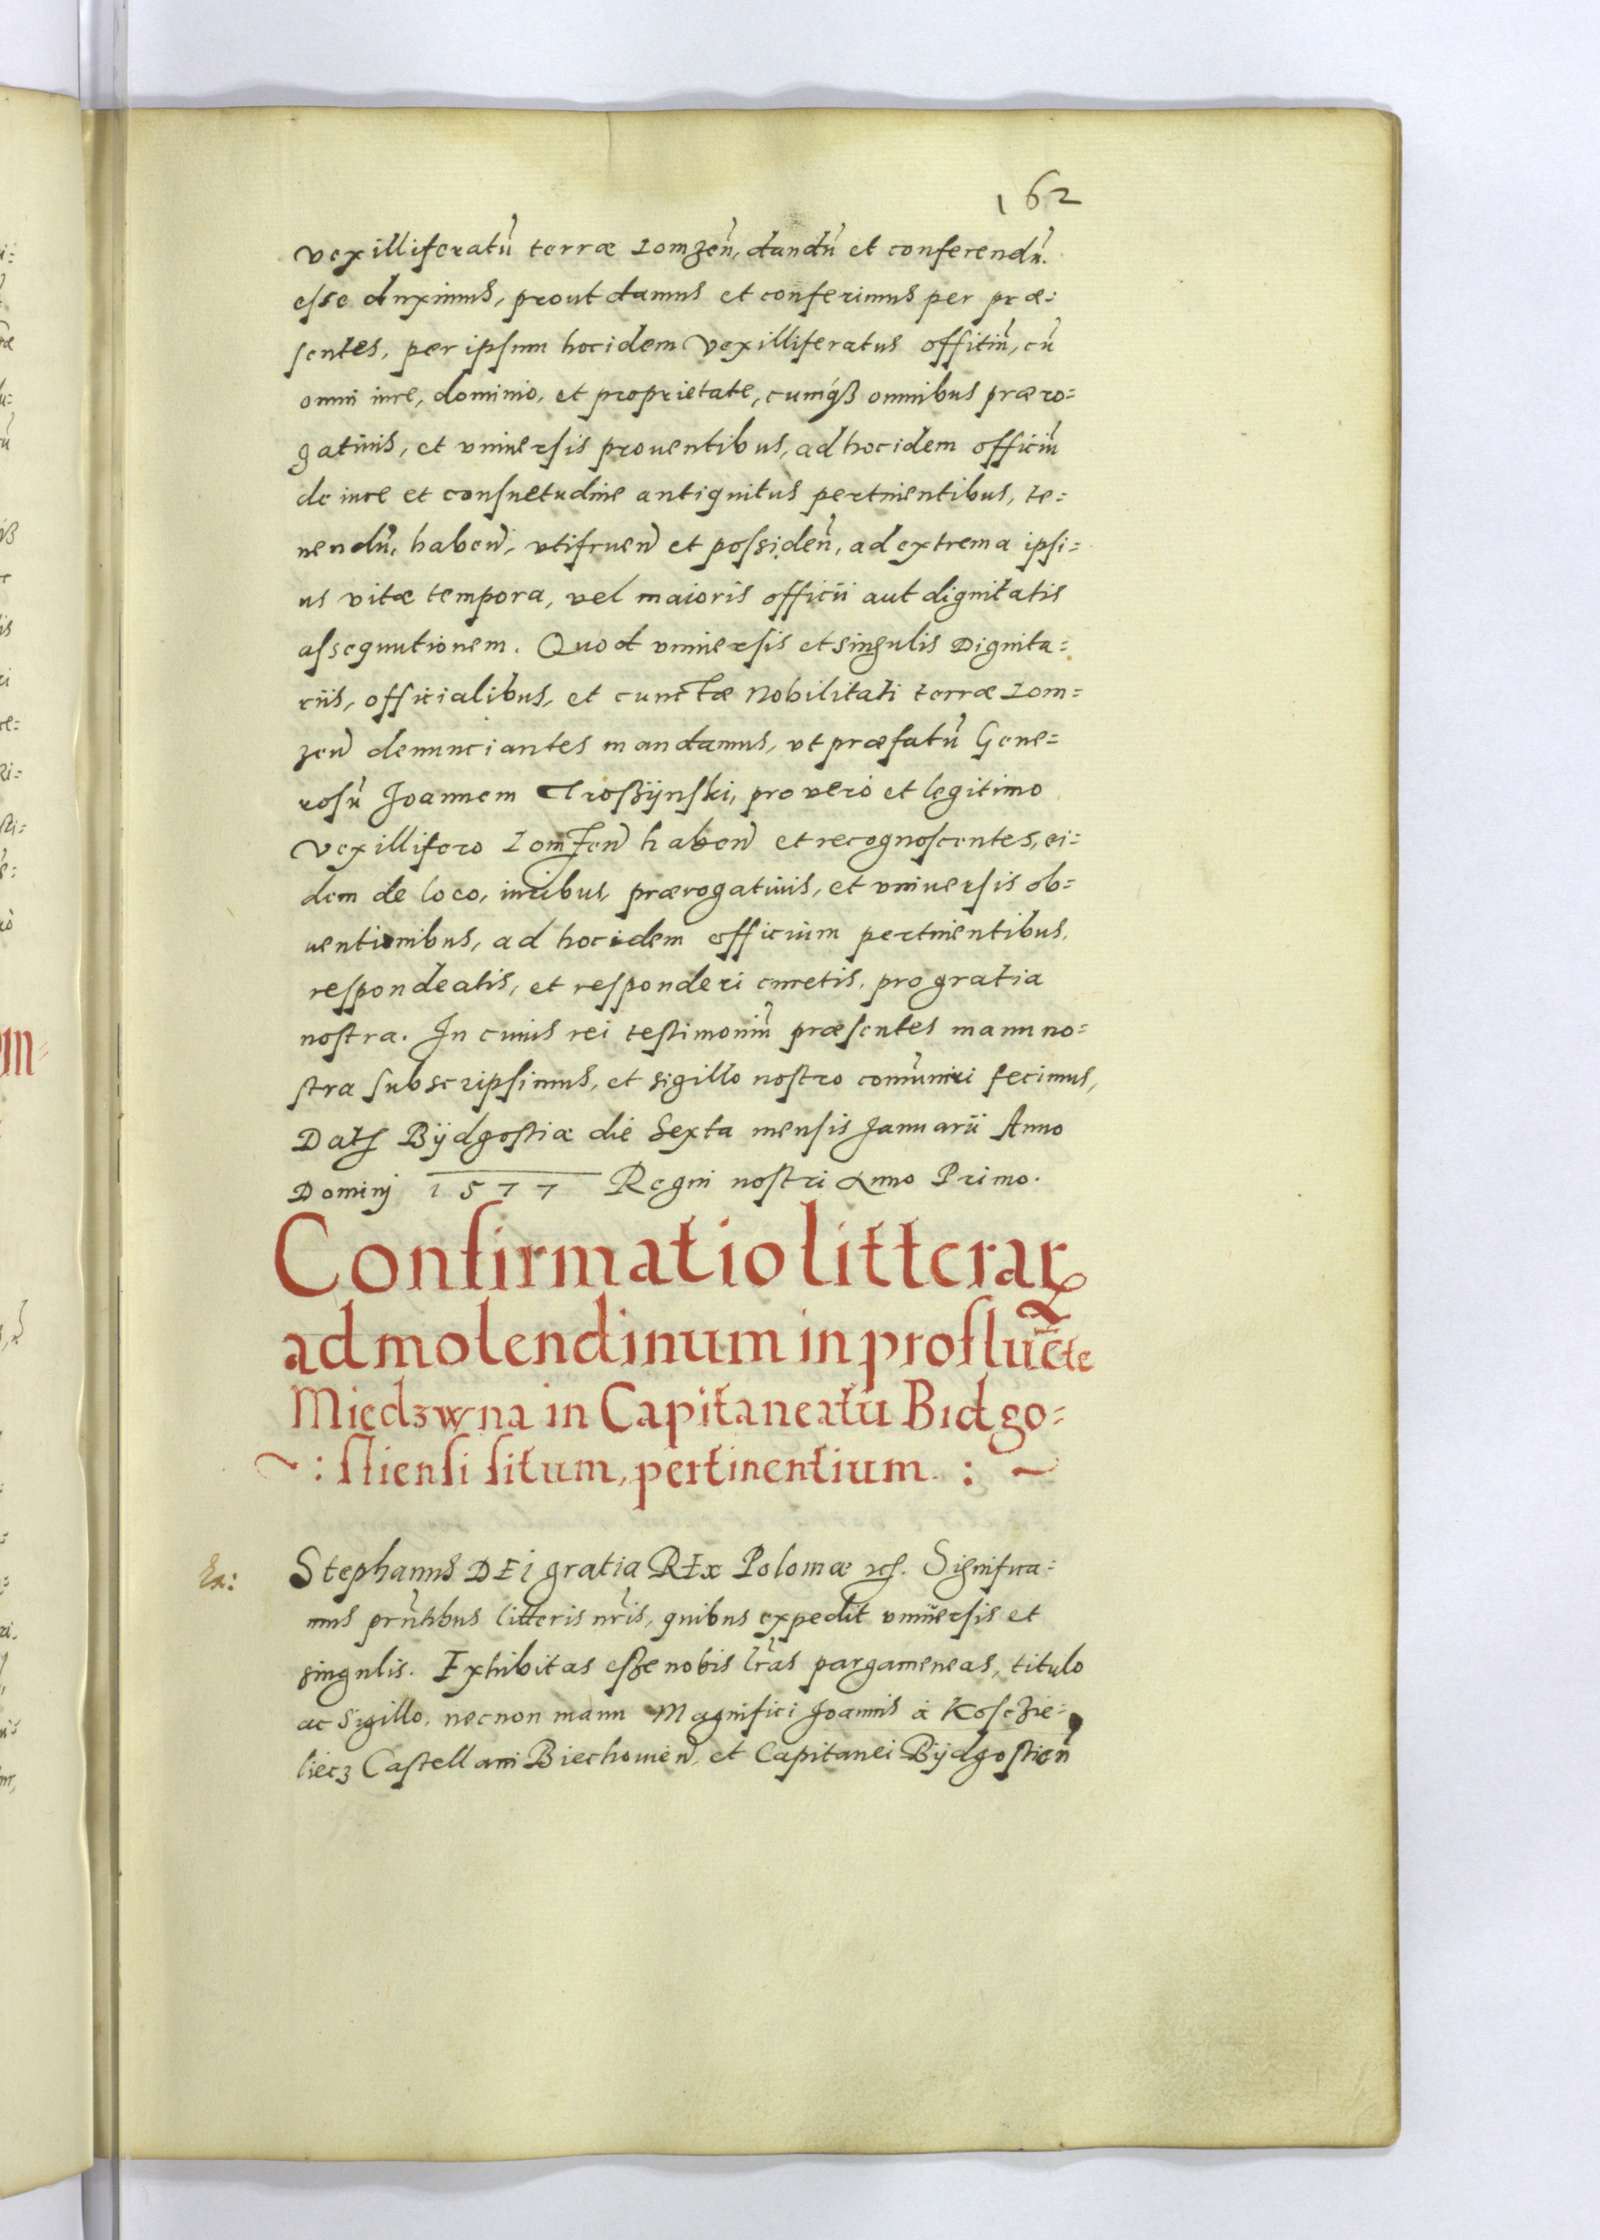 162
vexilliferatũ terræ Lomzeñ, dandũ et conferendũ.
esse duximus, prout damus et conferimus per præ=
sentes, per ipsum hocidem vexilliferatus offitiũ, cũ
omni iure, dominio, et proprietate, cumqȝ omnibus præro=
gatiuis, et vniuersis prouentibus, ad hocidem officiũ
de iure et consuetudine antiquitus pertinentibus, te=
nendũ, habeñ, vtifrueñ et possideñ, ad extrema ipsi=
us vitæ tempora, vel maioris officii aut dignitatis
assequutionem. Quod vniuersis et singulis Dignita=
riis, officialibus, et cunctæ Nobilitati terræ Lom=
zeñ denunciantes mandamus, vt præfatũ Gene=
rosũ Joannem Troßÿnski, pro vero et legitimo
Vexillifero Lomzeñ habeñ et recognoscentes, ei=
dem de loco, iuribus, prærogatiuis, et vniuersis ob=
uentionibus, ad hocidem officium pertinentibus,
respondeatis, et responderi curetis, pro gratia
nostra. In cuius rei testimoniũ præsentes manu no=
stra subscripsimus, et sigillo nostro com̃uniri fecimus,
Datʒ Bÿdgostiæ die Sexta mensis Januarii Anno
Dominj 1577 Regni nostri Anno Primo.
Confirmatio litterarꝝ
ad molendinum in profluẽte
Miedzwna in Capitaneatu Bidgo=
~ : stiensi situm, pertinentium. : ~
Ex:
Stephanus DEI gratia REx Poloniæ ꝛcʒ. Significa=
mus prñtibus litteris nr̃is, quibus expedit vniuersis et
singulis. Exhibitas eße nobis lr̃as pargameneas, titulo
ac Sigillo, necnon manu Magnifici Joannis à Kosczie=
liecz Castellani Biechouieñ, et Capitanei Bÿdgostieñ